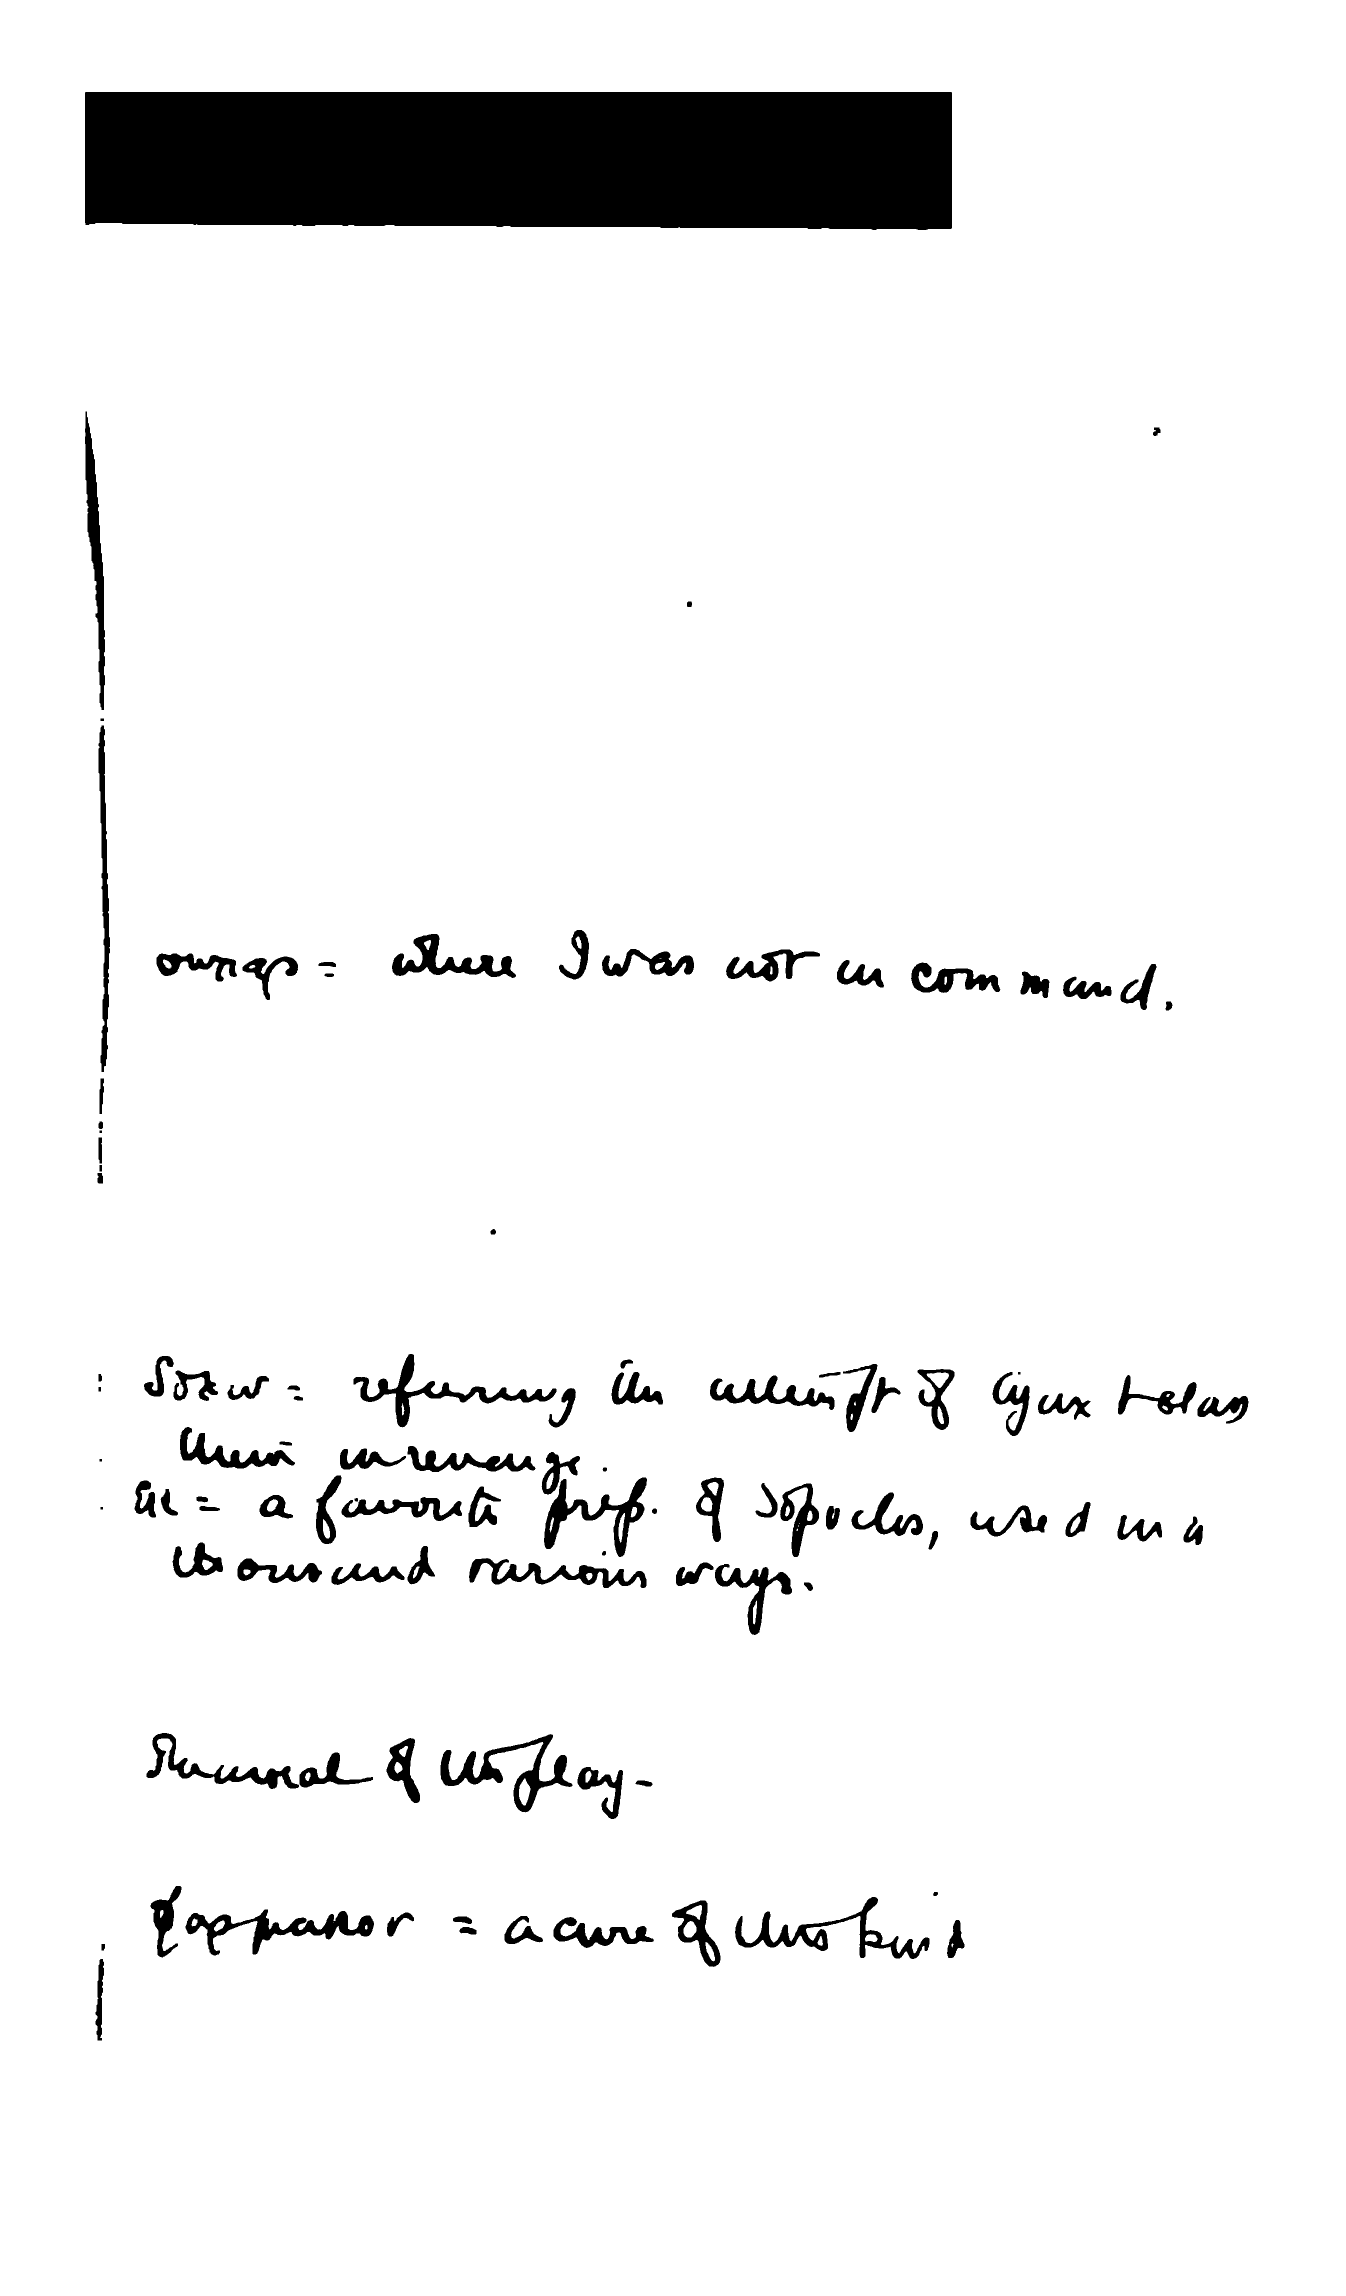 = where I was not in command.
= referring the attempt of Ajax to slay
them in revenge.
επι = a favorite prep. of Sopocles, used in a
thousand various ways.
moral of the play-
φαρμακον = a cure of this kind